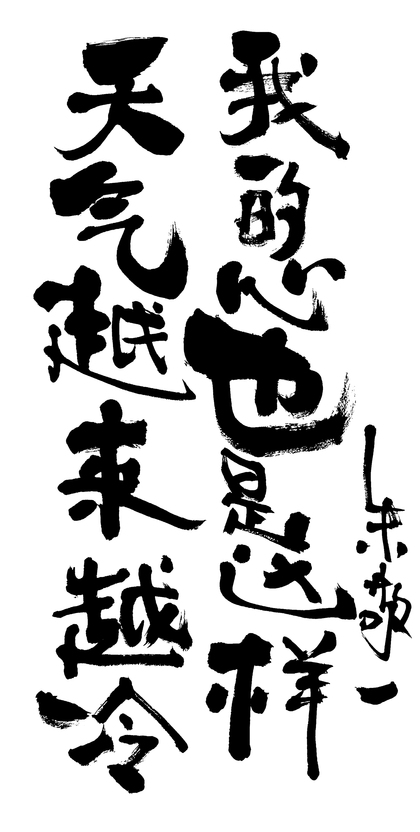 天气越来越冷
我的心也是这样
朱敬一